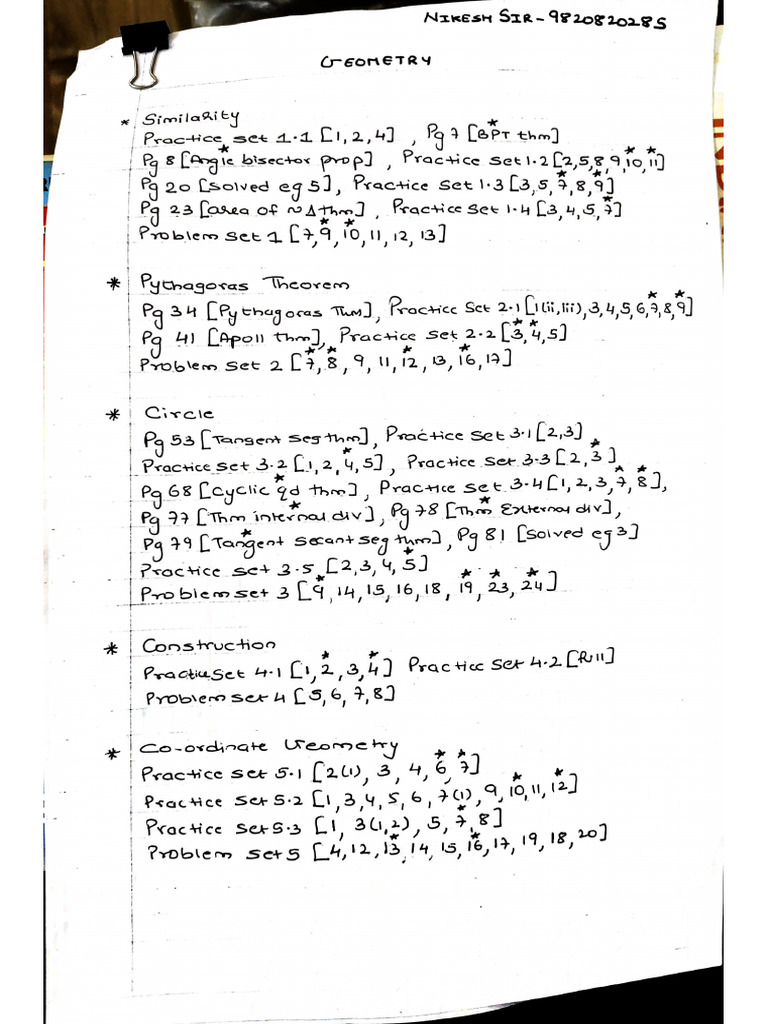 NIKESH SIR - 9820820285
GEOMETRY
* Similarity
Practice set 1.1 [1, 2, 4] , Pg 7 [BPT* thm]
Pg 8 [Angle* bisector prop] , Practice set 1.2 [2, 5, 8, 9, 10*, 11*]
Pg 20 [Solved eg 5], Practice set 1.3 [3, 5, 7*, 8, 9*]
Pg 23 [area of ~ Δ thm] , Practice set 1.4 [3, 4, 5, 7*]
Problem set 1 [7, 9*, 10*, 11, 12, 13]
* Pythagoras Theorem
Pg 34 [Pythagoras Thm], Practice Set 2.1 [1(ii, iii), 3, 4, 5, 6, 7*, 8, 9*]
Pg 41 [Apoll thm], Practice set 2.2 [3*, 4*, 5]
Problem set 2 [7*, 8*, 9, 11, 12*, 13, 16*, 17]
* Circle
Pg 53 [Tangent seg thm], Practice set 3.1 [2, 3]
Practice set 3.2 [1, 2, 4*, 5] , Practice set 3.3 [2, 3*]
Pg 68 [Cyclic* qd thm] , Practice set 3.4 [1, 2, 3, 7*, 8*],
Pg 77 [Thm internal* div], Pg 78 [Thm* External div],
Pg 79 [Tangent* secant seg thm], Pg 81 [Solved eg 3]
Practice set 3.5 [2, 3, 4, 5*]
Problem set 3 [9*, 14, 15, 16, 18, 19*, 23*, 24*]
* Construction
Practice Set 4.1 [1, 2*, 3, 4*] Practice Set 4.2
Problem set 4 [5, 6, 7, 8]
* Co-ordinate Geometry
Practice set 5.1 [2(1), 3, 4, 6*, 7*]
Practice set 5.2 [1, 3, 4, 5, 6, 7(1), 9, 10*, 11, 12*]
Practice set 5.3 [1, 3(1,2), 5, 7*, 8]
Problem set 5 [4, 12, 13*, 14, 15, 16*, 17, 19, 18, 20]